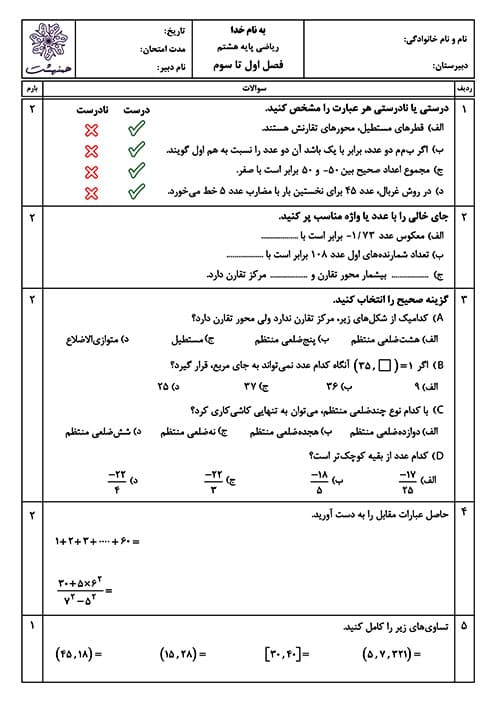 نام و نام خانوادگی:
دبیرستان:
به نام خدا
ریاضی پایه هشتم
فصل اول تا سوم
تاریخ:
مدت امتحان:
نام دبیر:
ردیف سوالات بارم
۱ درستی یا نادرستی هر عبارت را مشخص کنید. درست نادرست ۲
الف) قطرهای مستطیل، محورهای تقارنش هستند.
ب) اگر ب‌م‌م دو عدد، برابر با یک باشد آن دو عدد را نسبت به هم اول گویند.
ج) مجموع اعداد صحیح بین ۵۰- و ۵۰ برابر است با صفر.
د) در روش غربال، عدد ۴۵ برای نخستین بار با مضارب عدد ۵ خط می‌خورد.
۲ جای خالی را با عدد یا واژه مناسب پر کنید. ۲
الف) معکوس عدد ۱/۷۳- برابر است با ................
ب) تعداد شمارنده‌های اول عدد ۱۰۸ برابر است با ................
ج) ................ بیشمار محور تقارن و ................ مرکز تقارن دارد.
۳ گزینه صحیح را انتخاب کنید. ۲
A) کدامیک از شکل‌های زیر، مرکز تقارن ندارد ولی محور تقارن دارد؟
الف) هشت‌ضلعی منتظم ب) پنج‌ضلعی منتظم ج) مستطیل د) متوازی‌الاضلاع
B) اگر ۱=(۳۵,□) آنگاه کدام عدد نمی‌تواند به جای مربع، قرار گیرد؟
الف) ۹ ب) ۳۶ ج) ۳۷ د) ۲۵
C) با کدام نوع چندضلعی منتظم، می‌توان به تنهایی کاشی‌کاری کرد؟
الف) دوازده‌ضلعی منتظم ب) هجده‌ضلعی منتظم ج) نه‌ضلعی منتظم د) شش‌ضلعی منتظم
D) کدام عدد از بقیه کوچک‌تر است؟
الف) −۱۷/۲۵ ب) −۱۸/۵ ج) −۲۲/۳ د) −۲۲/۴
۴ حاصل عبارات مقابل را به دست آورید. ۲
۱+۲+۳+····+۶۰=
(۳۰+۵×۶²)/(۷²−۵²)=
۵ تساوی‌های زیر را کامل کنید. ۱
(۴۵,۱۸)= (۱۵,۲۸)= [۳۰,۴۰]= (۵,۷,۳۲۱)=